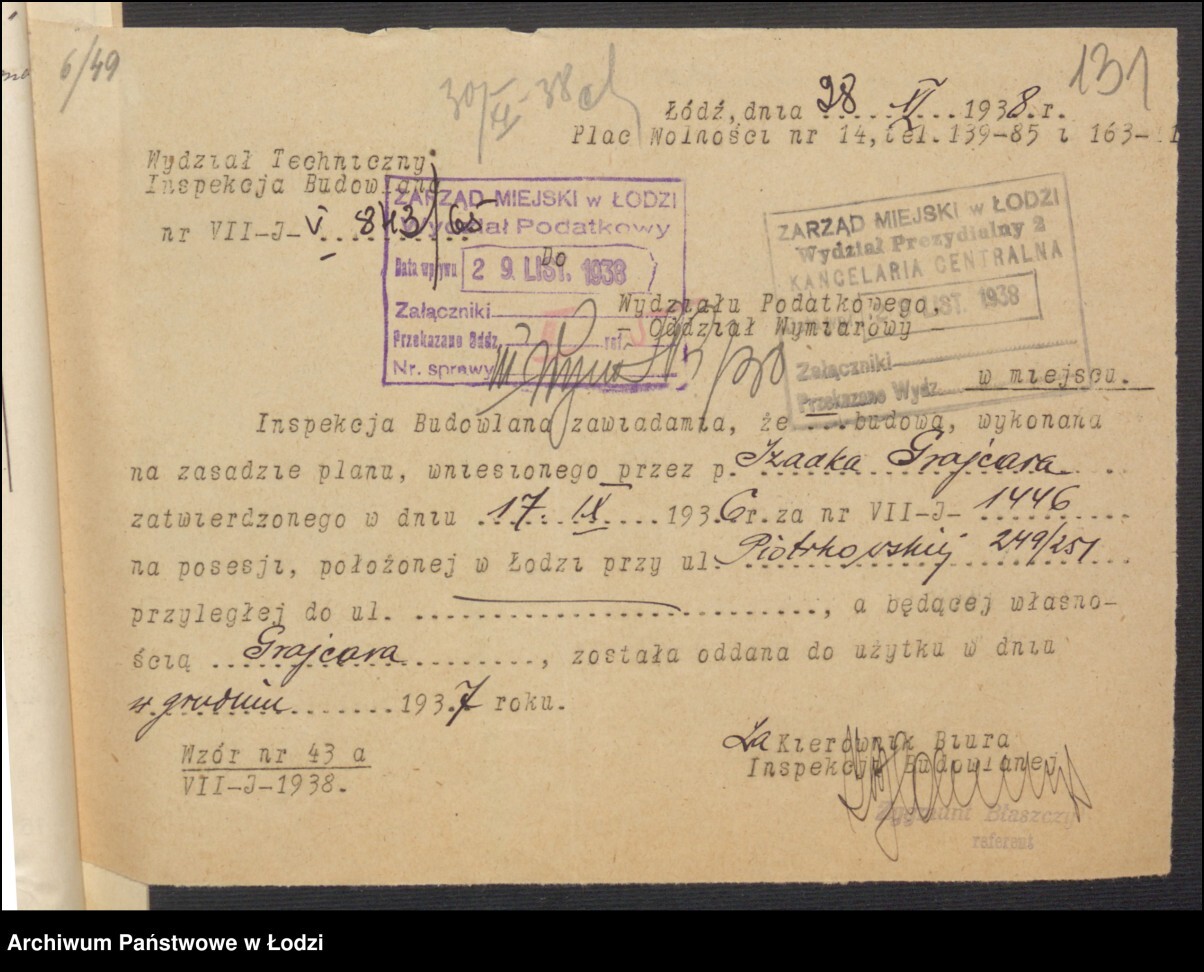 6/49
131
30/XI 38
Łódź, dnia 28. XI. 1938.r.
Plac Wolności nr 14, tel. 139-85 i 163-
Wydział Techniczny
Inspekcja Budowlana
nr VII-J-V 843/65
ZARZĄD MIEJSKI w ŁODZI
Wydział Podatkowy
Data wpływu 29. LIST. 1938
Załączniki
Przekazano Oddz. ref.
Nr. sprawy
ZARZĄD MIEJSKI w ŁODZI
Wydział Prezydialny 2
KANCELARIA CENTRALNA
LIST. 1938
Załączniki
Przekazano Wydz.
Do
Wydziału Podatkowego,
- Oddział Wymiarowy -
w miejscu.
Inspekcja Budowlana zawiadamia, że ... budowa, wykonana
na zasadzie planu, wniesionego przez p. Izadka Grajcara
zatwierdzonego w dniu 17. IX. 1936 r. za nr VII-J- 1446
na posesji, położonej w Łodzi przy ul. Piotrkowskiej 249/251
przyległej do ul. ........................, a będącej własno-
ścią Grajcara, została oddana do użytku w dniu
w grudniu 1937 roku.
Wzór nr 43 a
VII-J-1938.
Za Kierownik Biura
Inspekcji Budowlanej
Zygmunt Błaszczy
referent
Archiwum Państwowe w Łodzi